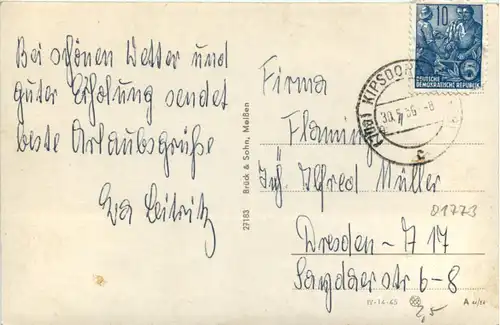 Bei schönen Wetter und
guter Erholung sendet
beste Urlaubsgrüße
Eva Leitritz
27183 Brück & Sohn, Meißen
10
5
DEUTSCHE
DEMOKRATISCHE REPUBLIK
KIPSDORF
30.5.56
c
Firma
Flaming
Inh. Alfred Müller
Dresden-A 17
Sangaerstr 6-8
01773
IV-14-45
A
2,5